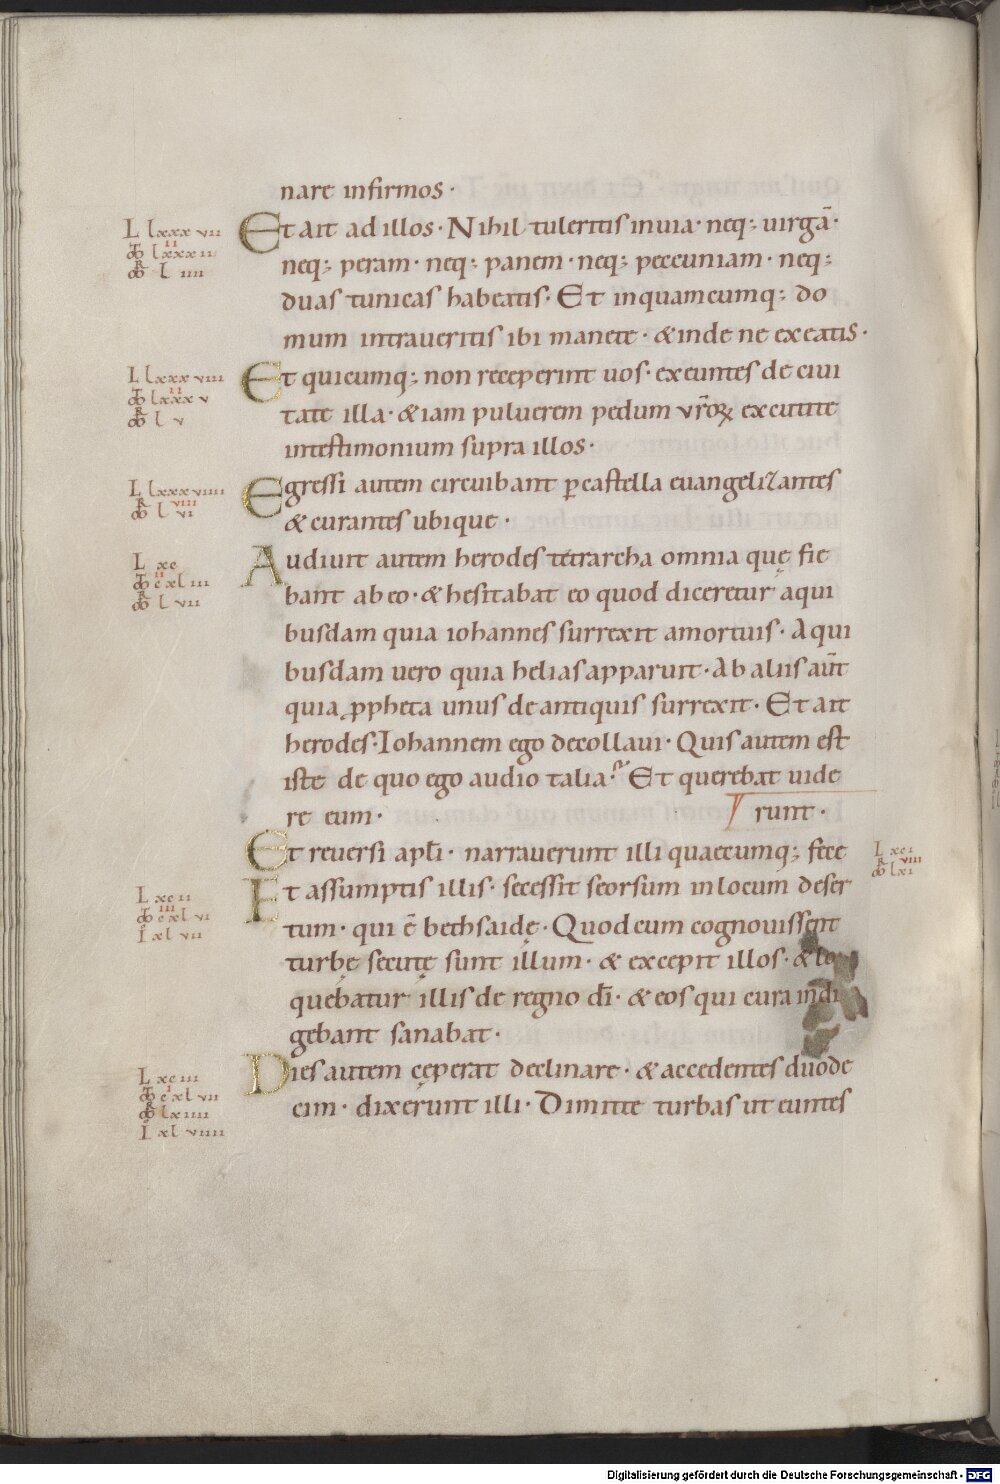 nare infirmos ·
L lxxx vii
Et ait ad illos · Nihil tuleritis in uia · neq; uirgā ·
neq; peram · neq; panem · neq; peccuniam · neq;
duas tunicas habeatis · Et in quamcumq; do
mum intraueritis ibi manete · & inde ne exeatis ·
L lxxx viii
Et quicumq; non receperint uos · exeuntes de ciui
tate illa · & iam puluerem pedum vr̄oꝝ excutite
in testimonium supra illos ·
L lxxx viiii
Egressi autem circuibant ꝑ castella euangelizantes
& curantes ubique ·
L xc
Audiuit autem herodes tetrarcha omnia quę fie
bant ab eo · & hesitabat eo quod diceretur a qui
busdam quia iohannes surrexit a mortuis · A qui
busdam uero quia helias apparuit · Ab aliis aūt
quia ꝓpheta unus de antiquis surrexit · Et ait
herodes · Iohannem ego decollaui · Quis autem est
iste de quo ego audio talia? Et querebat uide
re eum · runt ·
Et reuersi apl̄i · narrauerunt illi quaecumq; fece
L xci
L xc ii
Et assumptis illis · secessit seorsum in locum deser
tum · qui ē bethsaidę · Quod cum cognouissent
turbę secutę sunt illum · & excepit illos · & lo
quebatur illis de regno dī · & eos qui cura indi
gebant sanabat ·
L xc iii
Dies autem cęperat declinare · & accedentes duode
cim · dixerunt illi · Dimitte turbas ut euntes
Digitalisierung gefördert durch die Deutsche Forschungsgemeinschaft - DFG